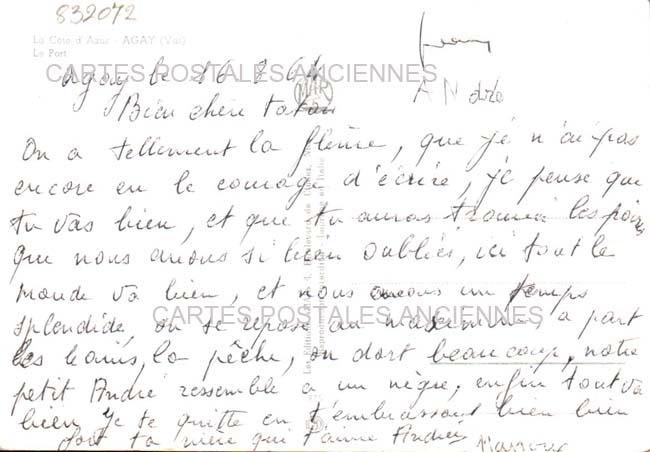 832072
La Côte d'Azur - AGAY (Var)
Le Port
CARTES POSTALES ANCIENNES
Agay le 16 8 64
MAR
ANdré
Bien chère tatan
On a tellement la flème, que je n'ai pas
encore eu le courage d'écrire, je pense que
tu vas bien, et que tu auras trouvé les poires
que nous avons si bien oubliés, ici tout le
monde va bien, et nous avons un temps
CARTES POSTALES ANCIENNES
splendide, on se repose au maximum, a part
les bains, la pêche, on dort beaucoup, notre
petit André ressemble a un nègre, enfin tout va
bien, je te quitte en t'embrassant bien bien
fort ta nièce qui t'aime Andrée